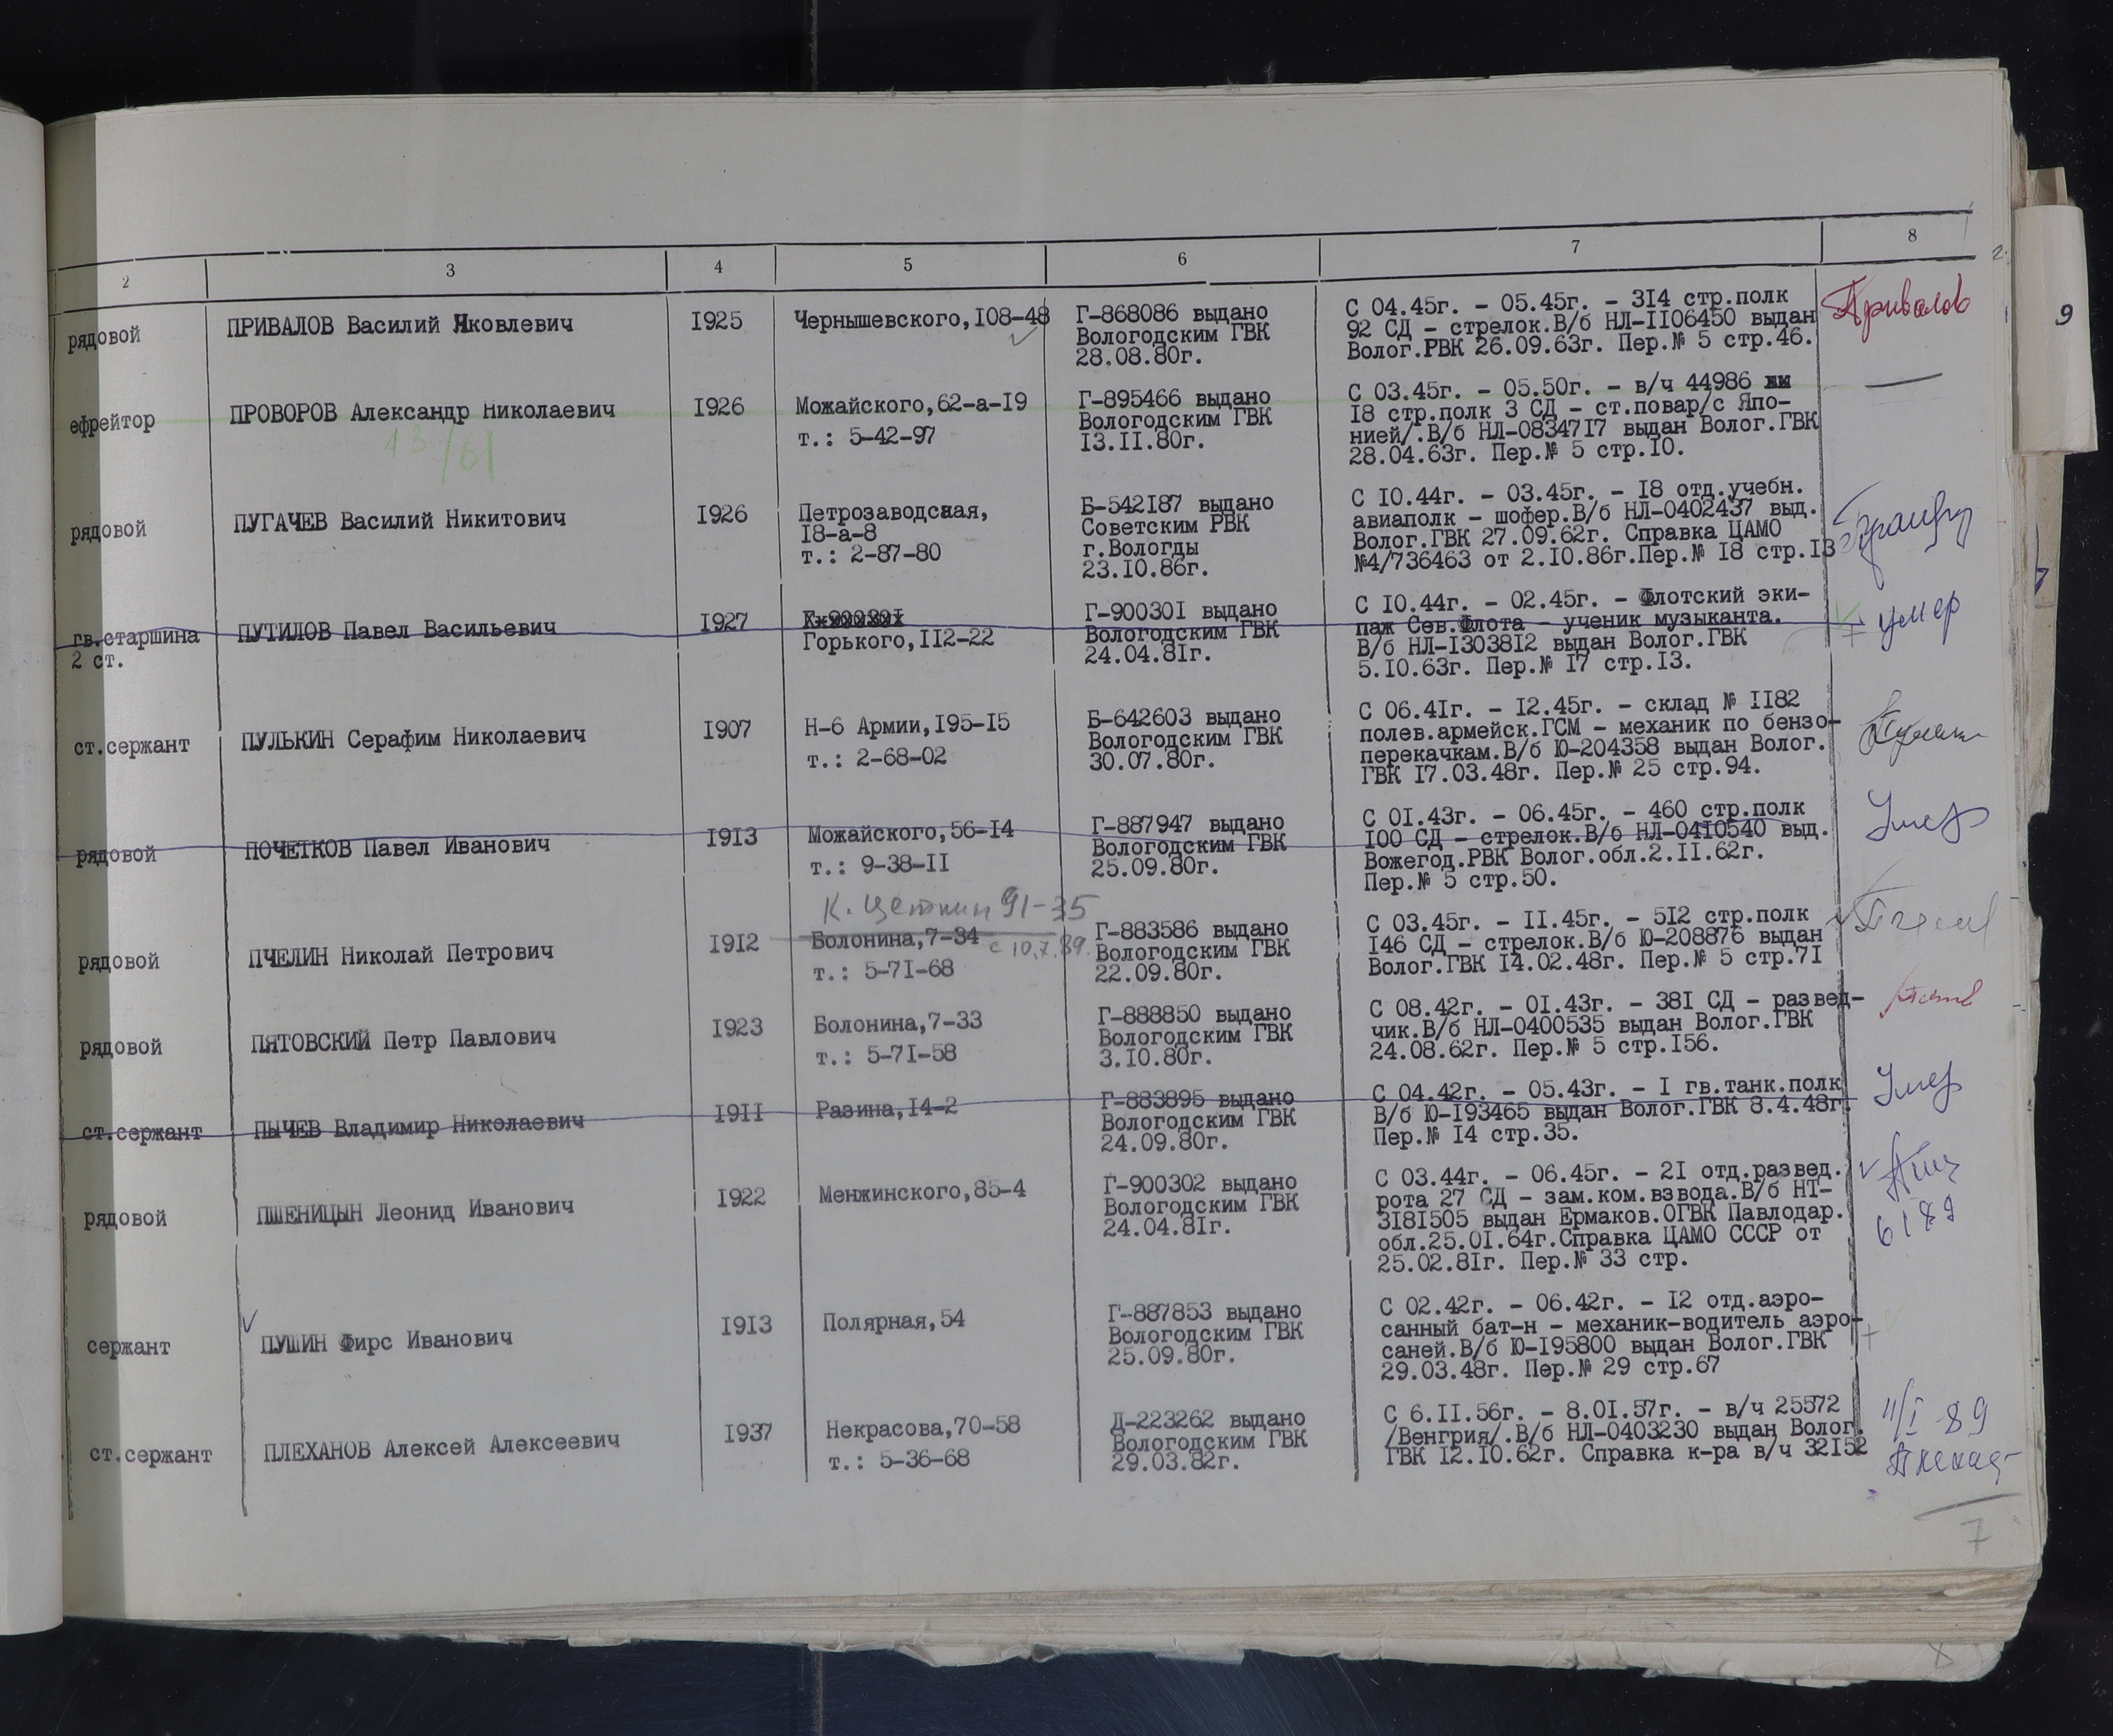 2 3 4 5 6 7 8
рядовой ПРИВАЛОВ Василий Яковлевич 1925 Чернышевского,108-48 Г-868086 выдано С 04.45г. - 05.45г. - 314 стр.полк Привалов
Вологодским ГВК 92 СД - стрелок.В/б НЛ-1106450 выдан
28.08.80г. Волог.РВК 26.09.63г. Пер.№ 5 стр.46.
9
ефрейтор ПРОВОРОВ Александр Николаевич 1926 Можайского,62-а-19 Г-895466 выдано С 03.45г. - 05.50г. - в/ч 44986
т.: 5-42-97 Вологодским ГВК 18 стр.полк 3 СД - ст.повар/с Япо-
13.11.80г. нией/.В/б НЛ-0834717 выдан Волог.ГВК
28.04.63г. Пер.№ 5 стр.10.
13/61
рядовой ПУГАЧЕВ Василий Никитович 1926 Петрозаводская, Б-542187 выдано С 10.44г. - 03.45г. - 18 отд.учебн.
18-а-8 Советским РВК авиаполк - шофер.В/б НЛ-0402437 выд.
т.: 2-87-80 г.Вологды Волог.ГВК 27.09.62г. Справка ЦАМО
23.10.86г. №4/736463 от 2.10.86г.Пер.№ 18 стр.13
гв.старшина ПУТИЛОВ Павел Васильевич 1927 Г-900301 выдано С 10.44г. - 02.45г. - Флотский эки-
2 ст. Горького,112-22 Вологодским ГВК паж Сев.Флота - ученик музыканта. умер
24.04.81г. В/б НЛ-1303812 выдан Волог.ГВК
5.10.63г. Пер.№ 17 стр.13.
ст.сержант ПУЛЬКИН Серафим Николаевич 1907 Н-6 Армии,195-15 Б-642603 выдано С 06.41г. - 12.45г. - склад № 1182
т.: 2-68-02 Вологодским ГВК полев.армейск.ГСМ - механик по бензо-
30.07.80г. перекачкам.В/б Ю-204358 выдан Волог.
ГВК 17.03.48г. Пер.№ 25 стр.94.
рядовой ПОЧЕТКОВ Павел Иванович 1913 Можайского,56-14 Г-887947 выдано С 01.43г. - 06.45г. - 460 стр.полк Умер
т.: 9-38-11 Вологодским ГВК 100 СД - стрелок.В/б НЛ-0410540 выд.
25.09.80г. Вожегод.РВК Волог.обл.2.11.62г.
Пер.№ 5 стр.50.
К. Цеткин 91-35
рядовой ПЧЕЛИН Николай Петрович 1912 Болонина,7-34 с 10.7.89. Г-883586 выдано С 03.45г. - 11.45г. - 512 стр.полк
т.: 5-71-68 Вологодским ГВК 146 СД - стрелок.В/б Ю-208876 выдан
22.09.80г. Волог.ГВК 14.02.48г. Пер.№ 5 стр.71
рядовой ПЯТОВСКИЙ Петр Павлович 1923 Болонина,7-33 Г-888850 выдано С 08.42г. - 01.43г. - 381 СД - развед-
т.: 5-71-58 Вологодским ГВК чик.В/б НЛ-0400535 выдан Волог.ГВК
3.10.80г. 24.08.62г. Пер.№ 5 стр.156.
ст.сержант ПЫЧЕВ Владимир Николаевич 1911 Разина,14-2 Г-883895 выдано С 04.42г. - 05.43г. - 1 гв.танк.полк Умер
Вологодским ГВК В/б Ю-193465 выдан Волог.ГВК 8.4.48г.
24.09.80г. Пер.№ 14 стр.35.
рядовой ПШЕНИЦЫН Леонид Иванович 1922 Менжинского,85-4 Г-900302 выдано С 03.44г. - 06.45г. - 21 отд.развед.
Вологодским ГВК рота 27 СД - зам.ком.взвода.В/б НТ-
24.04.81г. 3181505 выдан Ермаков.ОГВК Павлодар. 6 I 89
обл.25.01.64г.Справка ЦАМО СССР от
25.02.81г. Пер.№ 33 стр.
сержант ПУШИН Фирс Иванович 1913 Полярная,54 Г-887853 выдано С 02.42г. - 06.42г. - 12 отд.аэро-
Вологодским ГВК санный бат-н - механик-водитель аэро-
25.09.80г. саней.В/б Ю-195800 выдан Волог.ГВК
29.03.48г. Пер.№ 29 стр.67
ст.сержант ПЛЕХАНОВ Алексей Алексеевич 1937 Некрасова,70-58 Д-223262 выдано С 6.11.56г. - 8.01.57г. - в/ч 25572 11/I 89
т.: 5-36-68 Вологодским ГВК /Венгрия/.В/б НЛ-0403230 выдан Волог.
29.03.82г. ГВК 12.10.62г. Справка к-ра в/ч 32152
7